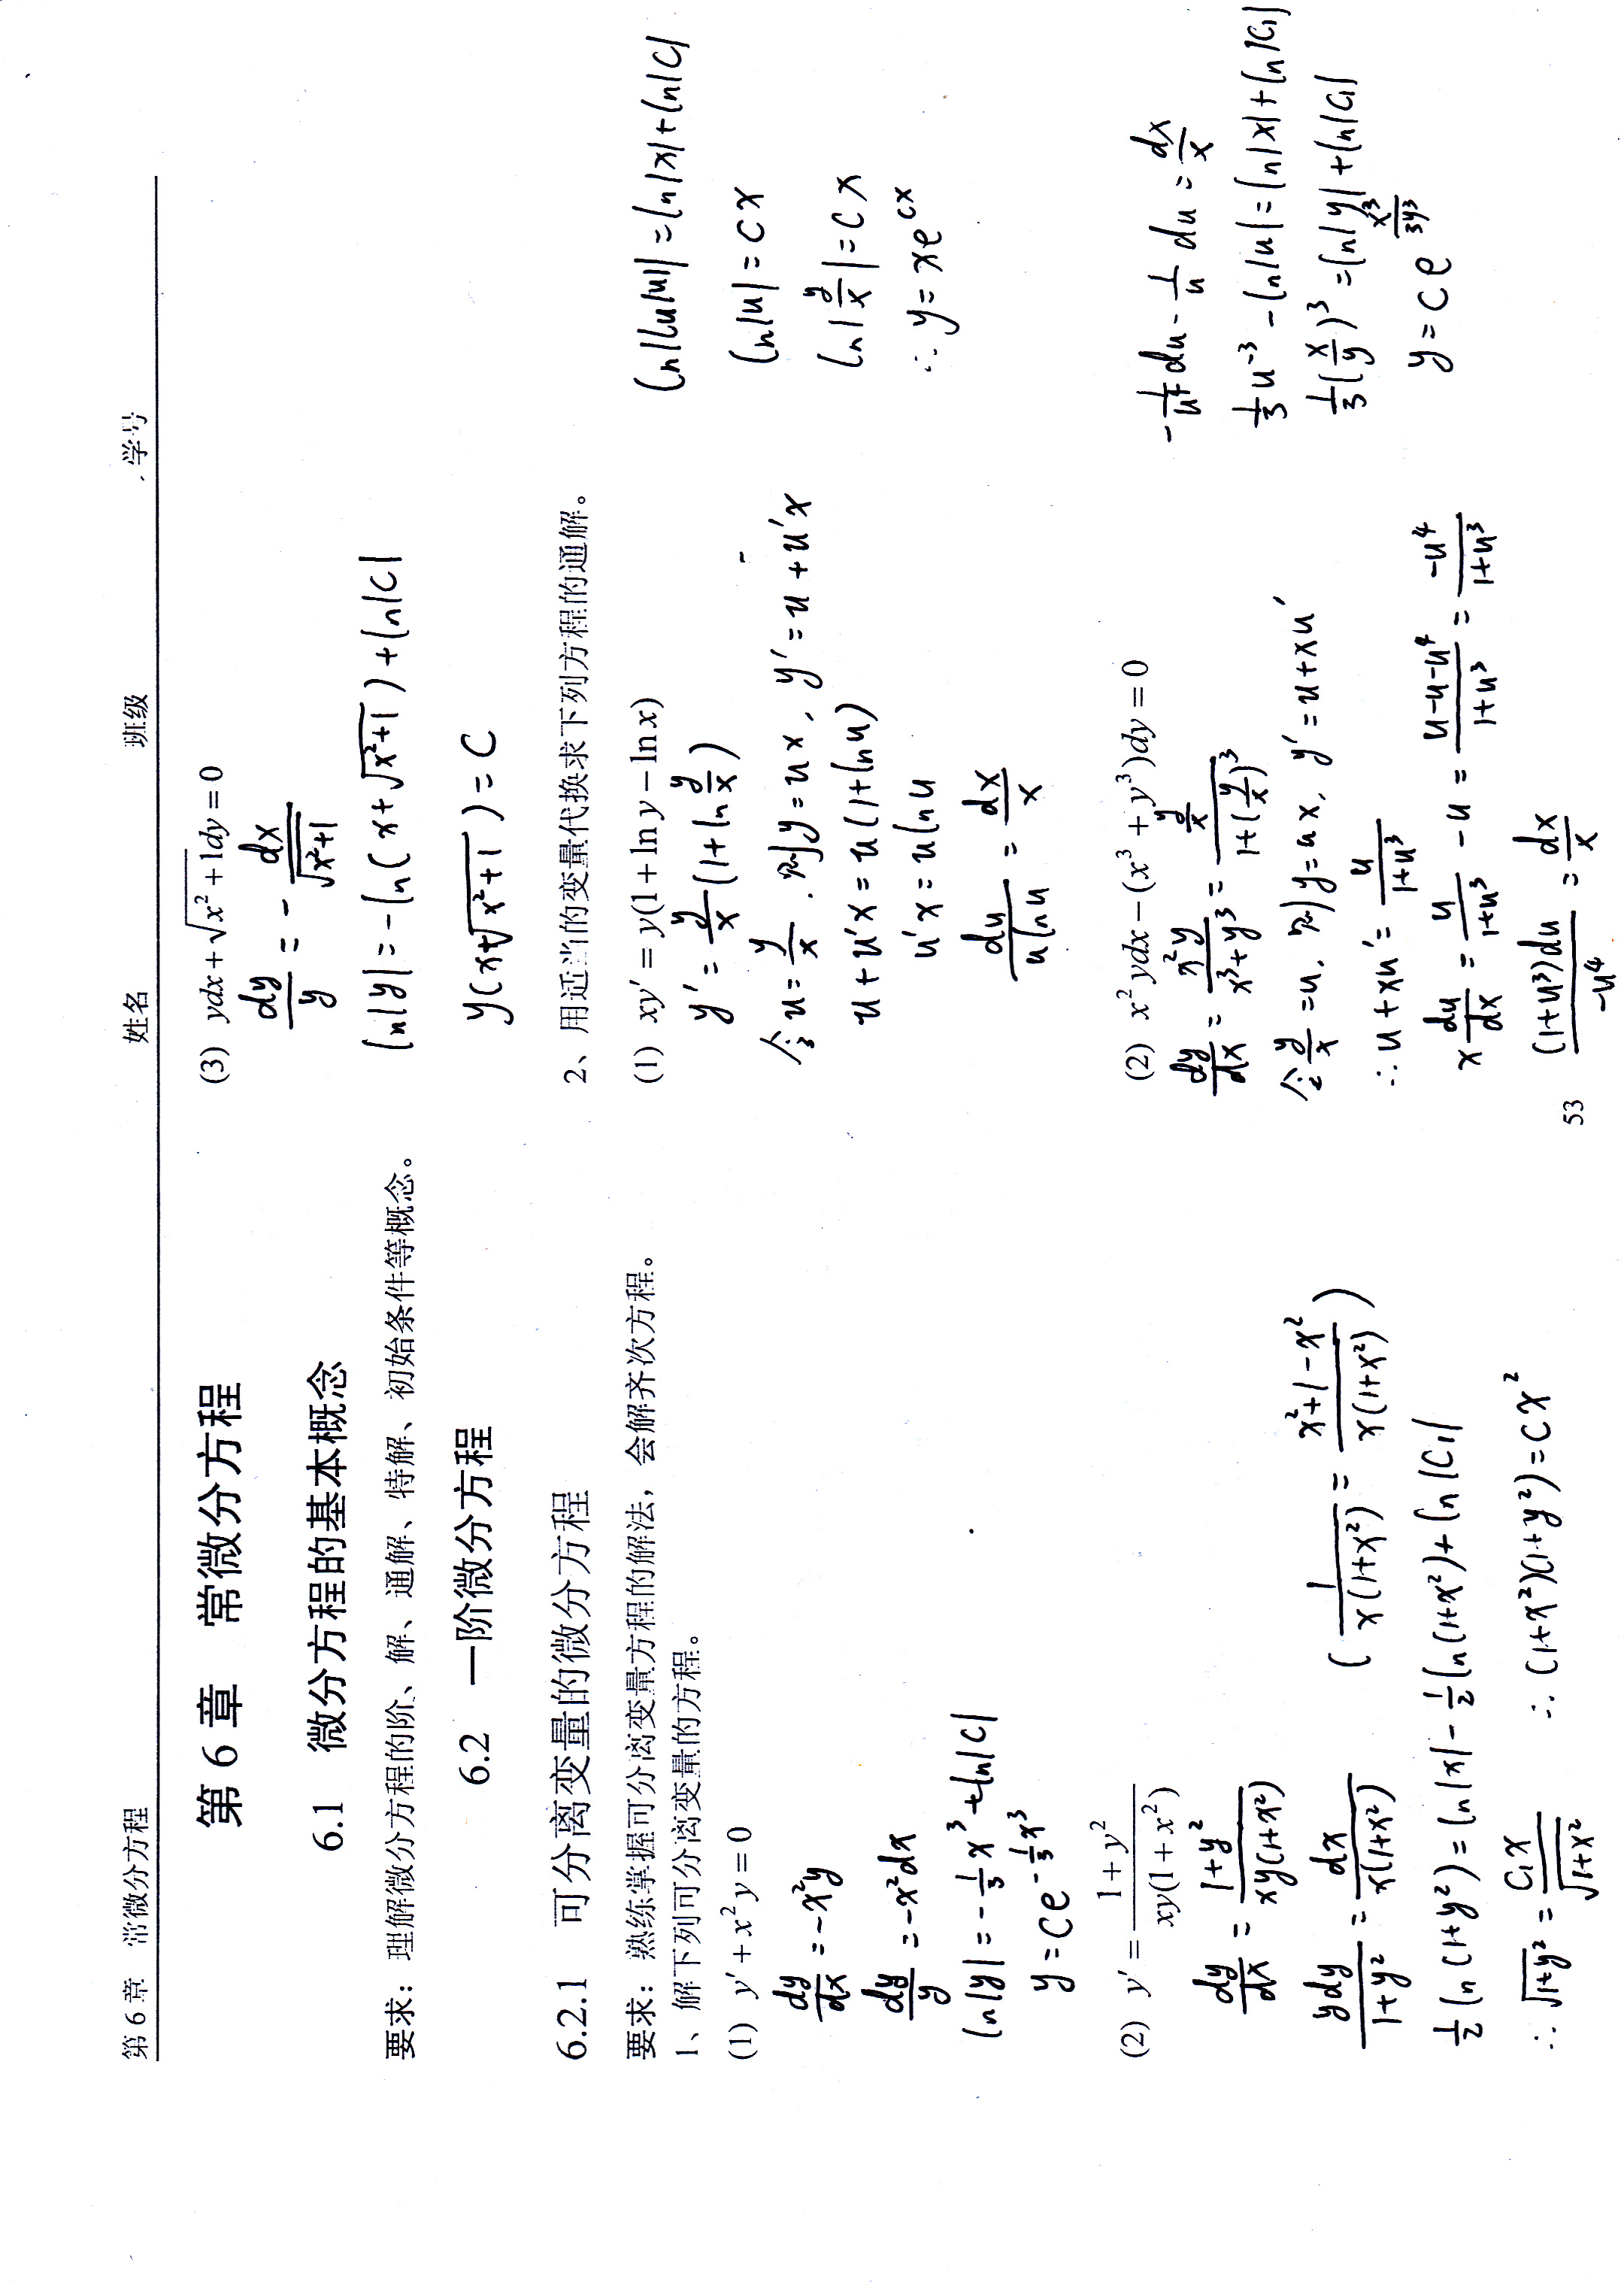 第 6 章 常微分方程 姓名 班级 学号
第 6 章 常微分方程
6.1 微分方程的基本概念
要求：理解微分方程的阶、解、通解、特解、初始条件等概念。
6.2 一阶微分方程
6.2.1 可分离变量的微分方程
要求：熟练掌握可分离变量方程的解法，会解齐次方程。
1、解下列可分离变量的方程。
(1) y′ + x²y = 0
dy/dx = -x²y
dy/y = -x²dx
ln|y| = -1/3 x³ + ln|C|
y = Ce^(-1/3 x³)
(2) y′ = (1+y²)/(xy(1+x²))
dy/dx = (1+y²)/(xy(1+x²))
ydy/(1+y²) = dx/(x(1+x²)) ( 1/(x(1+x²)) = (x²+1-x²)/(x(1+x²)) )
1/2 ln(1+y²) = ln|x| - 1/2 ln(1+x²) + ln|C₁|
∴ √(1+y²) = C₁x/√(1+x²) ∴ (1+x²)(1+y²) = Cx²
(3) ydx + √(x²+1)dy = 0
dy/y = - dx/√(x²+1)
ln|y| = -ln(x+√(x²+1)) + ln|C|
y(x+√(x²+1)) = C
2、用适当的变量代换求下列方程的通解。
(1) xy′ = y(1+ln y - ln x)
y′ = y/x (1+ln y/x)
令 u = y/x , 则 y = ux , y′ = u + u′x
u + u′x = u(1+ln u)
u′x = u ln u
du/(u ln u) = dx/x
ln|ln|u|| = ln|x| + ln|C|
ln|u| = Cx
ln|y/x| = Cx
∴ y = xe^(Cx)
(2) x²ydx - (x³+y³)dy = 0
dy/dx = x²y/(x³+y³) = (y/x)/(1+(y/x)³)
令 y/x = u, 则 y = ux, y′ = u + xu′
∴ u + xu′ = u/(1+u³)
x du/dx = u/(1+u³) - u = (u-u-u⁴)/(1+u³) = -u⁴/(1+u³)
(1+u³)du/(-u⁴) = dx/x
-1/u⁴ du - 1/u du = dx/x
1/3 u⁻³ - ln|u| = ln|x| + ln|C₁|
1/3 (x/y)³ = ln|y| + ln|C₁|
y = Ce^(x³/3y³)
53